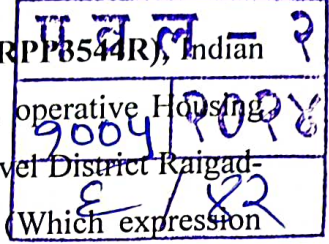 RPP3544R), Indian
प व ल - २
operative Housing
१००५ २०२४
vel District Raigad-
६ / ४२
(Which expression